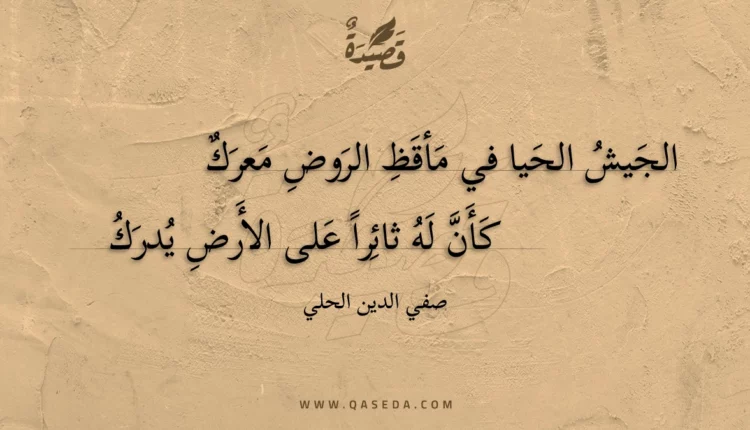 قَصِيدَةٌ
الجَيشُ الحَيا في مَأقَظِ الرَوضِ مَعرَكٌ
كَأَنَّ لَهُ ثائِراً عَلى الأَرضِ يُدرَكُ
صفي الدين الحلي
WWW.QASEDA.COM